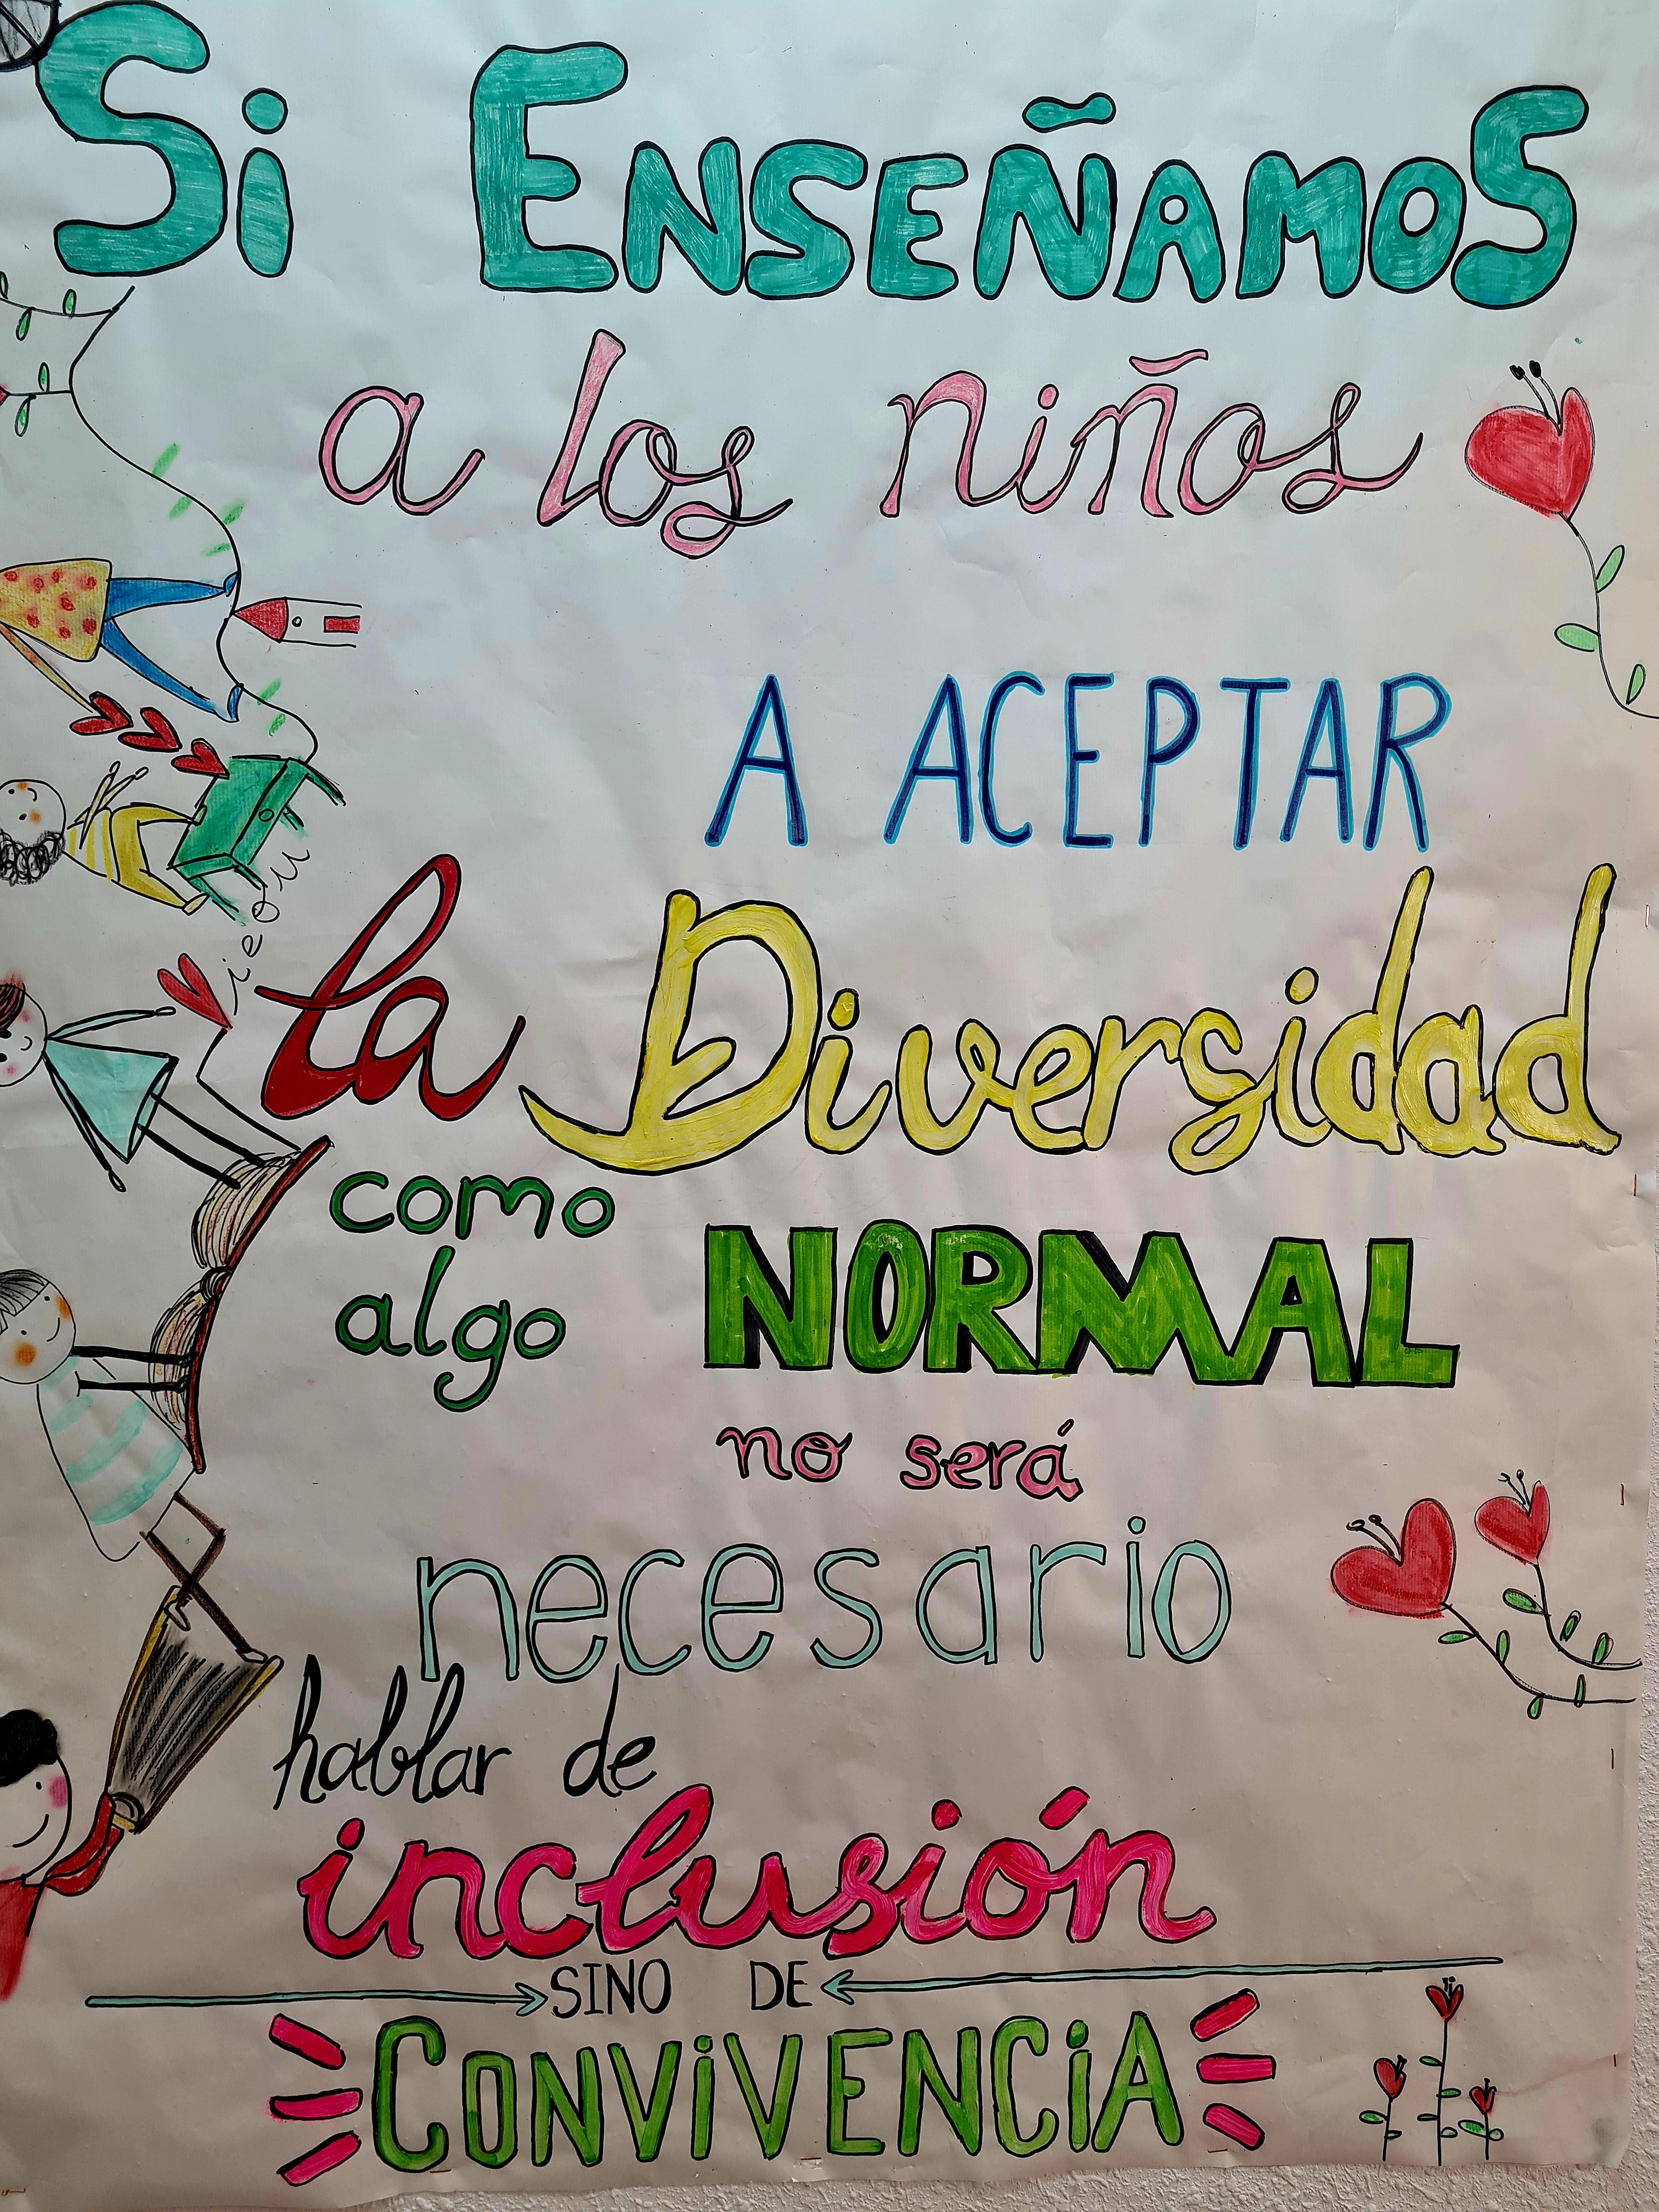 Si ENSEÑAMOS
a los niños
A ACEPTAR
la Diversidad
como
algo NORMAL
no será
necesario
hablar de
inclusión
SINO DE
CONViVENCiA
ieou